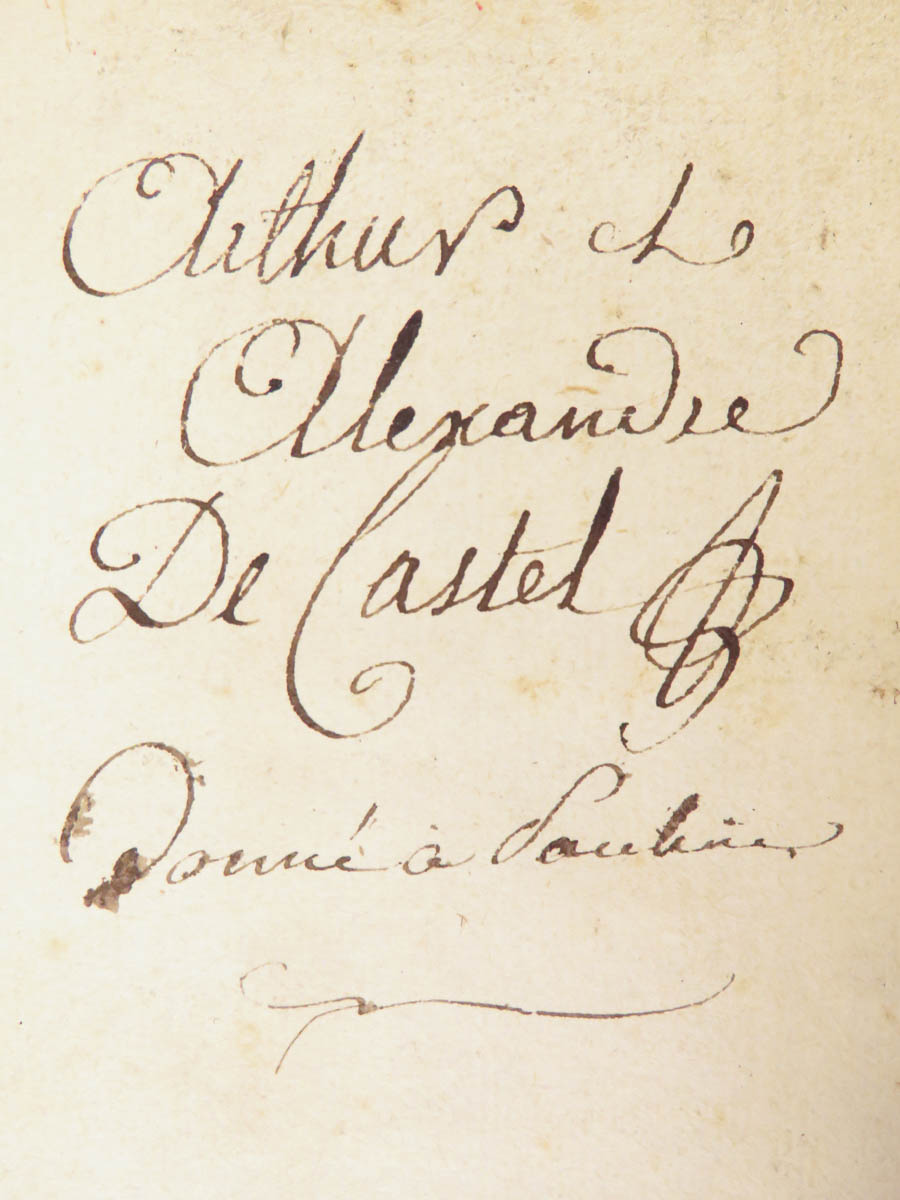 Arthur et
Alexandre
De Castel
Donné à Pauline